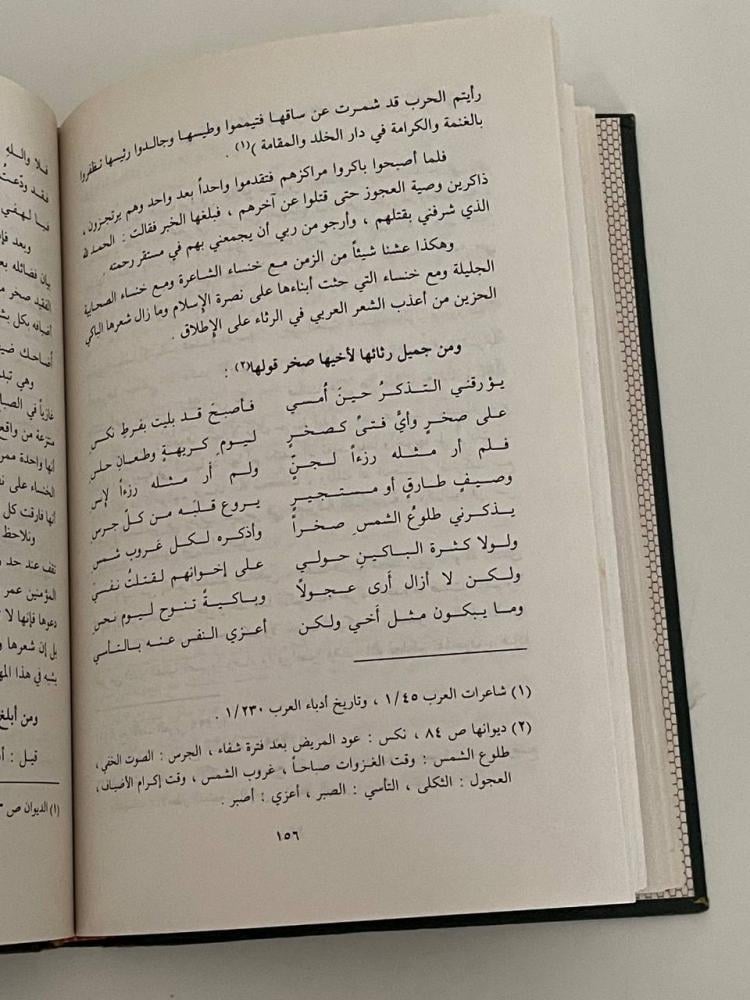 رأيتم الحرب قد شمرت عن ساقها فتيمموا وطيسها وجالدوا رئيسها تظفروا
بالغنمة والكرامة في دار الخلد والمقامة )(١) .
فلما أصبحوا باكروا مراكزهم فتقدموا واحداً بعد واحد وهم يرتجزون ،
ذاكرين وصية العجوز حتى قتلوا عن آخرهم ، فبلغها الخبر فقالت : الحمد لله
الذي شرفني بقتلهم ، وأرجو من ربي أن يجمعني بهم في مستقر رحمته .
وهكذا عشنا شيئاً من الزمن مع خنساء الشاعرة ومع خنساء الصحابية
الجليلة ومع خنساء التي حثت أبناءها على نصرة الإسلام وما زال شعرها الباكي
الحزين من أعذب الشعر العربي في الرثاء على الإطلاق .
ومن جميل رثائها لأخيها صخر قولها(٢) :
يؤرقني التذكرُ حينَ أُمسي فأصبحَ قد بليت بفرطِ نكسِ
على صخرٍ وأيُّ فتىً كصخرٍ ليومِ كريهةٍ وطعانِ حلسِ
فلم أر مثله رزءاً لجنٍّ ولم أر مثله رزءاً لإنسِ
وضيفٍ طارقٍ أو مستجيرٍ يروع قلبَه من كلّ جرسِ
يذكرني طلوعُ الشمسِ صخراً وأذكره لكل غروبِ شمسِ
ولولا كثرة الباكين حولي على إخوانهم لقتلتُ نفسي
ولكن لا أزال أرى عجولاً وباكيةً تنوح ليوم نحسِ
وما يبكون مثل أخي ولكن أعزي النفس عنه بالتأسي
(١) شاعرات العرب ١/٤٥ ، وتاريخ أدباء العرب ١/٢٣٠ .
(٢) ديوانها ص ٨٤ ، نكس : عود المريض بعد فترة شفاء ، الجرس : الصوت الخفي ،
طلوع الشمس : وقت الغزوات صباحاً ، غروب الشمس ، وقت إكرام الأضياف ،
العجول : الثكلى ، التأسي : الصبر ، أعزي : أصبر .
١٥٦
فلا والله
فقد ودّعتُ
فيا لهفي
وبعد
بيان فضائله
الفقيد صخر
أضيافه بكل
أضاحك
وهي
غازياً في
منتزعة من
أنها واحدة
الخنساء على
أنها فارقت كل
ونلاحظ
تقف عند حد
المؤمنين عمر
دعوها فإنها لا
بل إن شعرها
يشبه في هذا
ومن أبلغ
قيل :
(١) الديوان ص